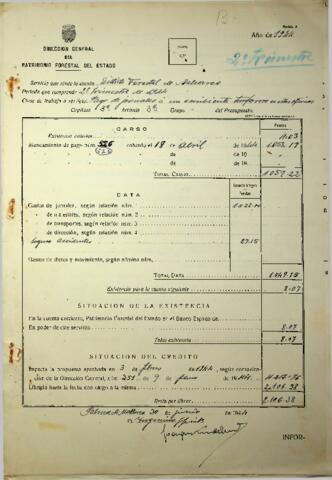 Modelo
Año de 1944
DIRECCION GENERAL
DEL
PATRIMONIO FORESTAL DEL ESTADO
2º Trimestre
Servicio que rinde la cuenta Distrito Forestal de Baleares
Período que comprende 2º Trimestre de 1944
Clase de trabajo a realizar Pago de jornales a un escribiente
Capítulo 3º Artículo 3º Grupo del Presupuesto
CARGO
Pesetas
Existencia anterior 4.03
Libramiento de pago núm. 526 cobrado 18 de abril de 1944 1.053.19
de de 19
de de 19
TOTAL CARGO 1.057.22
DATA
Gastos de jornales, según relación núm. 1 1.022.00
de materiales, según relación núm. 2
de transportes, según relación núm. 3
de dirección, según relación núm. 4
Seguro accidentes 27.15
Gastos de dietas y movimiento, según nómina núm.
TOTAL DATA 1.049.15
Existencia para la cuenta siguiente 8.07
SITUACION DE LA EXISTENCIA
En la cuenta corriente, Patrimonio Forestal del Estado en el Banco España de
En poder de este servicio 8.07
Total existencia 8.07
SITUACION DEL CREDITO
Importa la propuesta aprobada en 3 de fbro de 1944, según comunica-
ción de la Dirección General, núm. 251 de 9 de
Librado hasta la fecha con cargo a la misma 2.106.38
Resta por librar 2.106.38
Palma de Mallorca 30 de junio de 1944
El Ingeniero
INFOR-